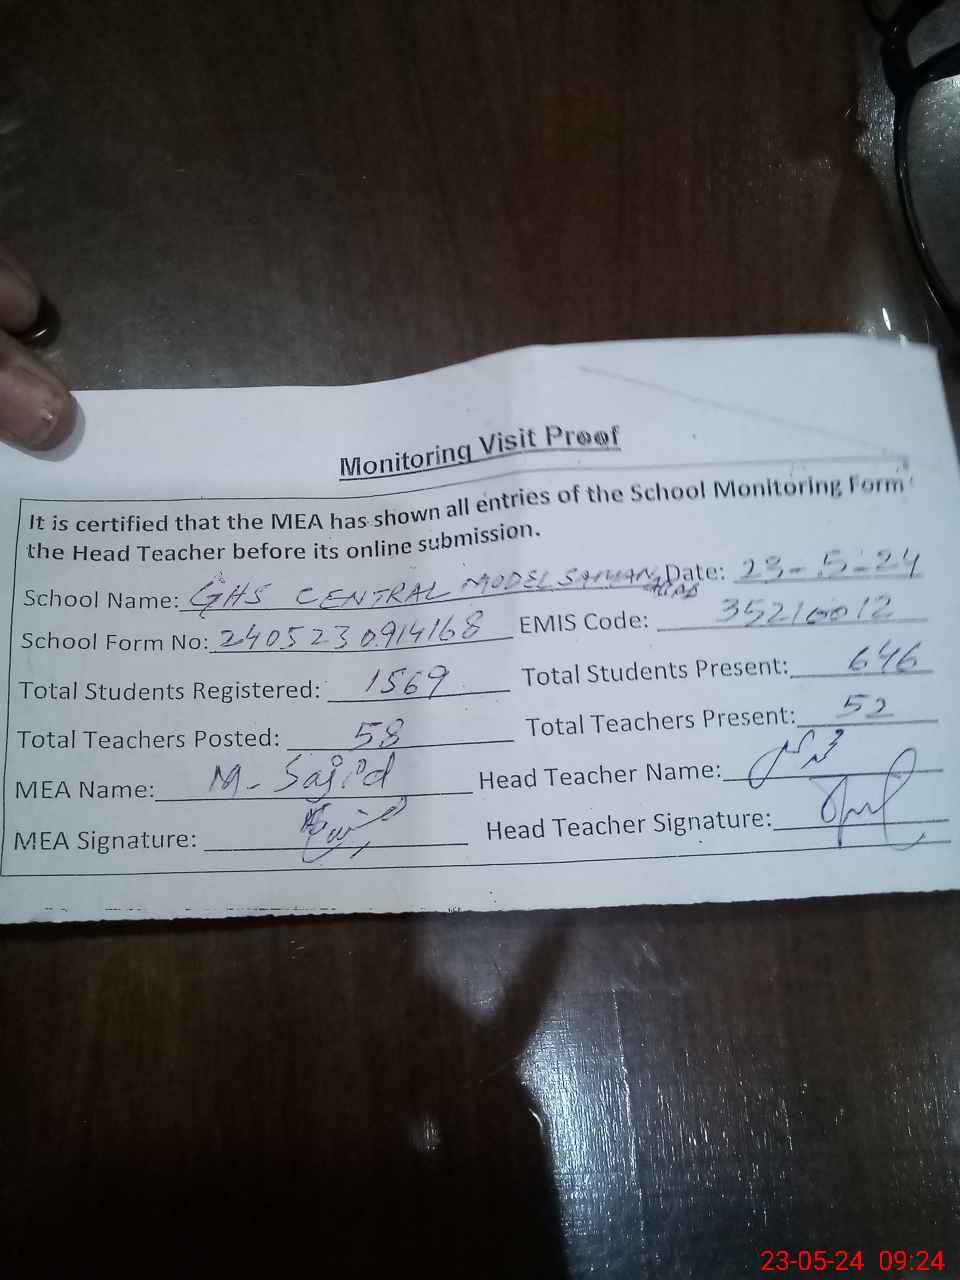 Monitoring Visit Proof
It is certified that the MEA has shown all entries of the School Monitoring Form
the Head Teacher before its online submission.
School Name: GHS CENTRAL MODEL SAMANABAD Date: 23-5-24
School Form No: 2405230914168 EMIS Code: 35210012
Total Students Registered: 1569 Total Students Present: 646
Total Teachers Posted: 58 Total Teachers Present: 52
MEA Name: M- Sajid Head Teacher Name:
MEA Signature: Head Teacher Signature:
23-05-24 09:24